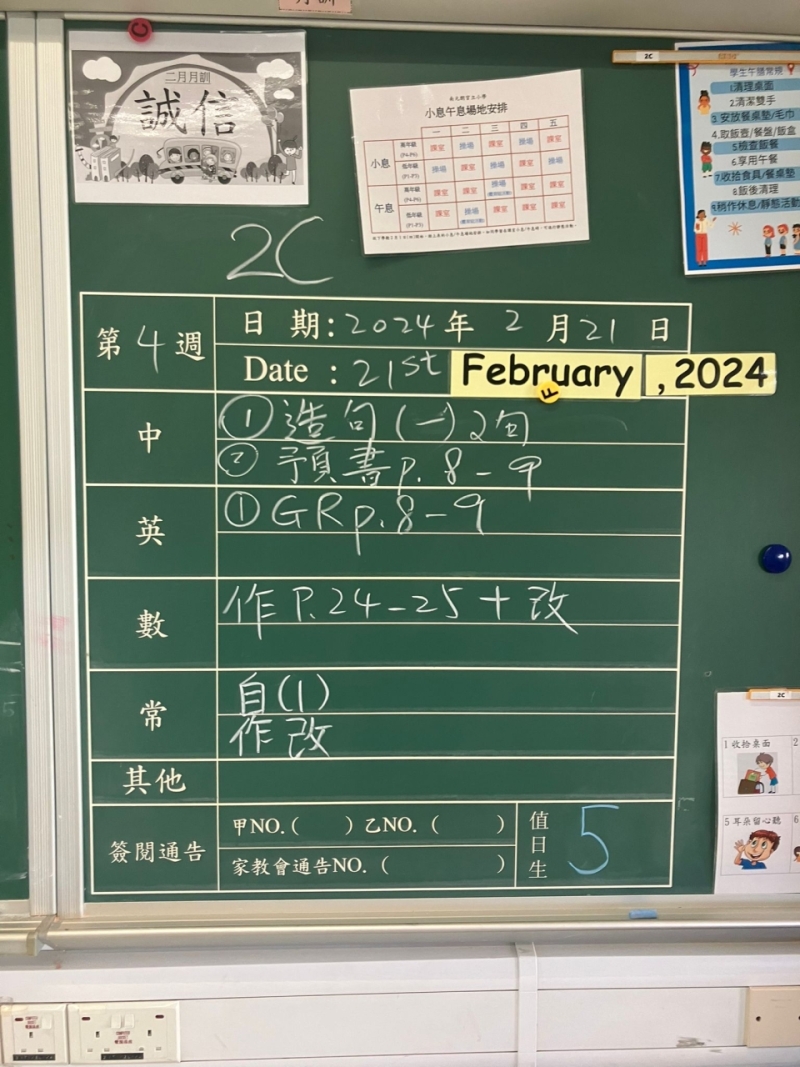 二月月訓
誠信
小息午息場地安排
一 二 三 四 五
小息 高年級 (P4-P6) 課室 操場 課室 操場 課室
低年級 (P1-P3) 操場 課室 操場 課室 操場
午息 高年級 (P4-P6) 課室 課室 操場 課室 課室
低年級 (P1-P3) 課室 操場 課室 課室 課室
2C
學生午膳常規
1清理桌面
2.清潔雙手
3.安放餐桌墊/毛巾
4.取飯壺/餐盤/飯盒
5檢查飯餐
6.享用午餐
7.收拾食具/餐桌墊
8飯後清理
稍作休息/靜態活動
2C
第4週
日 期:2024年 2 月21 日
Date : 21st February , 2024
中
① 造句(一)2句
② 預書p.8-9
英
① GRp.8-9
數
作P.24-25+改
常
自(1)
作改
其他
簽閱通告
甲NO.( ) 乙NO. ( )
家教會通告NO. ( )
值日生
5
2C
1 收拾桌面
2
5 耳朵留心聽
6